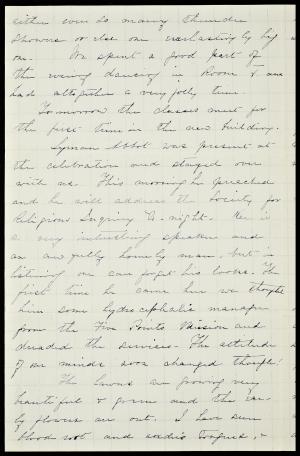 either even so many thunder
showers or else one everlastingly big
one. We spent a good part of
the evening dancing in Room & and
had altogether a very jolly time.
Tomorrow the classes meet for
the first time in the new building.
Lyman Abbot was present at
the celebration and stayed over
with me. This morning he preached
and he will address the Society for
Religious Inquiry to-night. He is
a very interesting speaker and
an awfully homely man, but in
listening one can forget his looks. The
first time he came here we thought
him some hydrocephalic manager
from the Five Points Mission and
dreaded the services. The attitude
of our minds soon changed though!
The lawns are growing very
beautiful & green and the ear-
ly flowers are out. I have seen
blood root and adders tongues, &